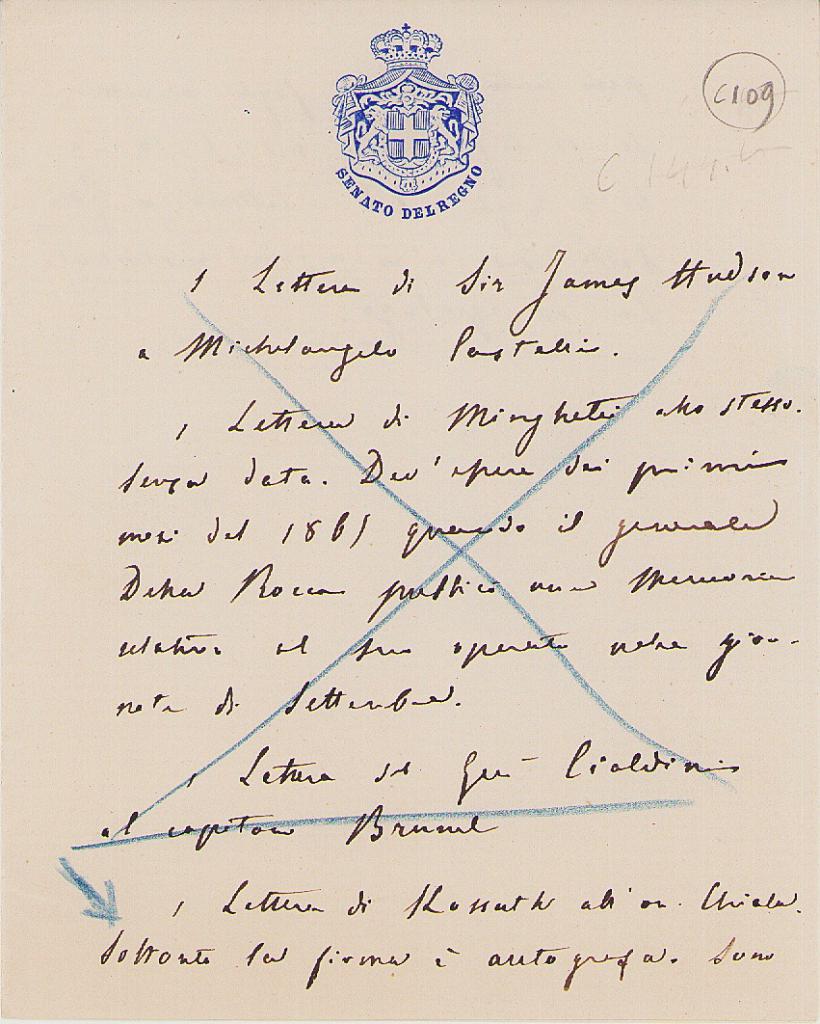 SENATO DEL REGNO
C109
C 144.
1 Lettera di Sir James Hudson
a Michelangelo Castelli.
1 Lettera di Minghetti allo stesso.
senza data. Dev'essere dei primi
mesi del 1865 quando il generale
Della Rocca pubblicò una Memoria
relativa al suo operato nelle gior-
nate di Settembre.
1 Lettera del Gen Cialdini
al capitano Brunel
1 Lettera di Kossuth all'on. Chiala.
Soltanto la firma è autografa. Sono